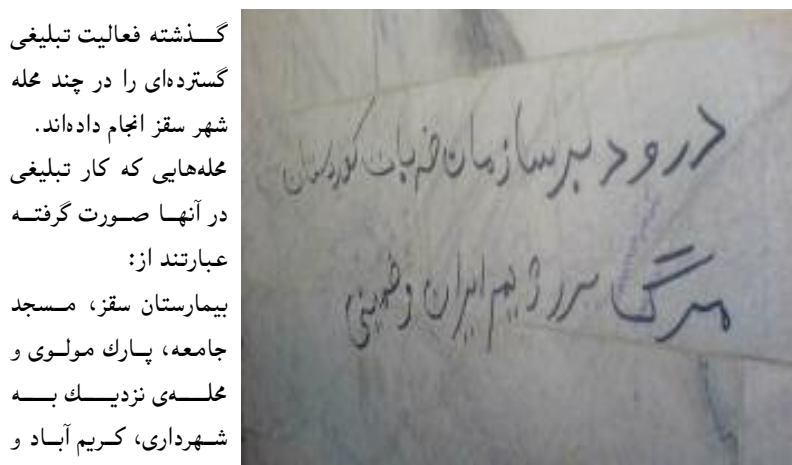 گذشته فعالیت تبلیغی
گسترده‌ای را در چند محله
شهر سقز انجام داده‌اند.
محله‌هایی که کار تبلیغی
در آنها صورت گرفته
عبارتند از:
بیمارستان سقز، مسجد
جامعه، پارك مولوی و
محله‌ی نزدیك به
شهرداری، کریم آباد و
درود بر سازمان خه بات کوردستان
مرگ بر رژیم ایران و خمینی